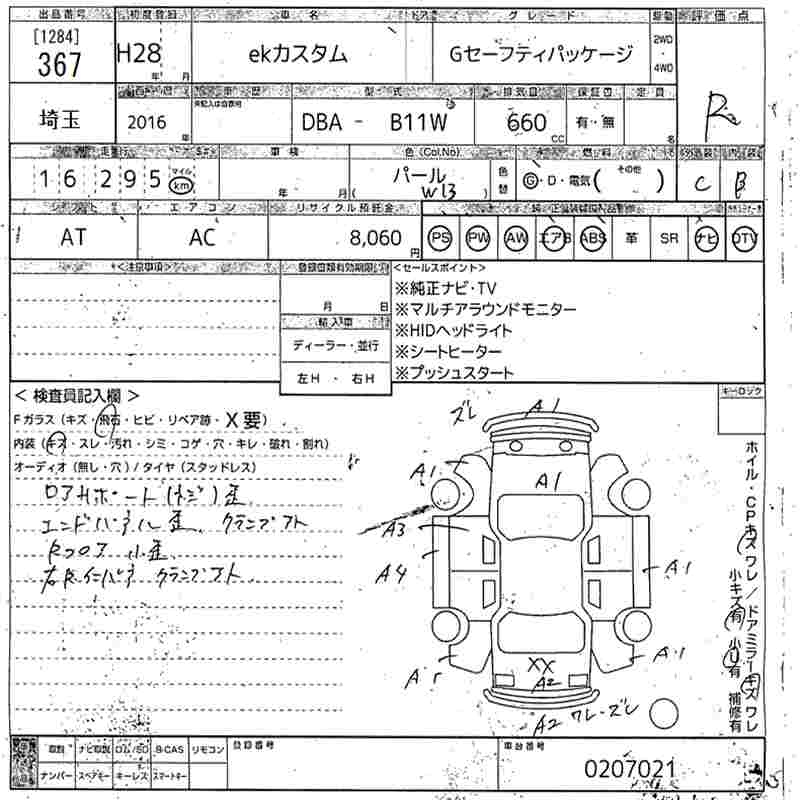 出品番号 初度登録 車名 ドア グレード 駆動 評価点
[1284]
367
H28 年 月
ekカスタム
Gセーフティパッケージ
2WD
4WD
R
埼玉
2016 年
車歴
型式
DBA - B11W
排気量
660 CC
保証書
有・無
定員
名
走行
16 295 マイル km
車検
年 月
色(Col.No)
パール
W13
色替
燃料
G・D・電気( その他 )
外装 内装
C B
シフト エアコン リサイクル預託金
AT AC 8,060 円
PS PW AW エアB ABS 革 SR ナビ DTV
<注意事項> 登録書類有効期限 <セールスポイント>
月 日
輸入車
ディーラー・並行
左H ・ 右H
※純正ナビ・TV
※マルチアラウンドモニター
※HIDヘッドライト
※シートヒーター
※プッシュスタート
< 検査員記入欄 >
キーロック
Fガラス(キズ・飛石・ヒビ・リペア跡・X要)
内装(キズ・スレ・汚れ・シミ・コゲ・穴・キレ・破れ・割れ)
オーディオ(無し・穴)/タイヤ(スタッドレス)
エンドパネル歪 クランプアト
Rフロア 小歪
クランプアト
ズレ A1
A1 A1
A3
A4 A1
A1
XX
A2
A2 ワレ・ズレ
ホイル・CPキズワレ/ドアミラーキズワレ
小キズ有 小U有 補修有
取説 ナビ取説 ロム/SD B-CAS リモコン
ナンバー スペアキー キーレス スマートキー
登録番号
車台番号
0207021